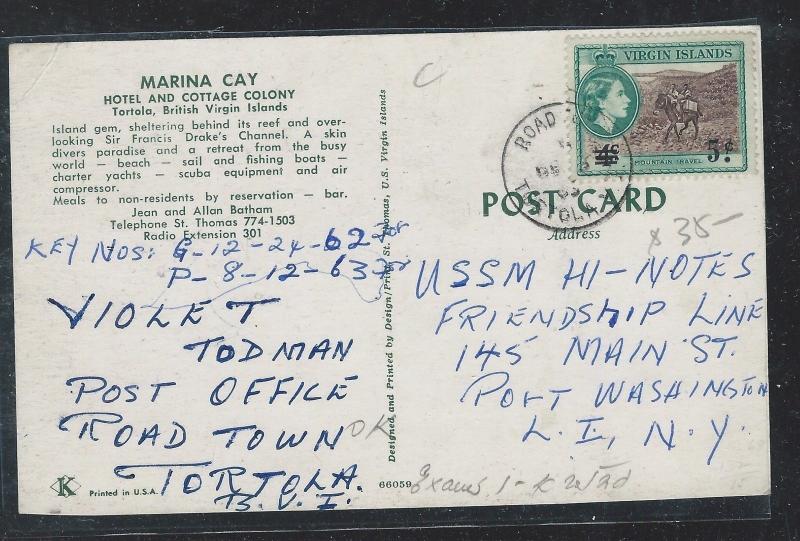 MARINA CAY
HOTEL AND COTTAGE COLONY
Tortola, British Virgin Islands
Island gem, sheltering behind its reef and over-
looking Sir Francis Drake's Channel. A skin
divers paradise and a retreat from the busy
world — beach — sail and fishing boats —
charter yachts — scuba equipment and air
compressor.
Meals to non-residents by reservation — bar.
Jean and Allan Batham
Telephone St. Thomas 774-1503
Radio Extension 301
KEY NOS: G-12-24-62
P-8-12-63
VIOLET
TODMAN
POST OFFICE
ROAD TOWN
TORTOLA.
B.V.I.
OK
K
Printed in U.S.A.
66059
Designed and Printed by Design/Print, St. Thomas, U.S. Virgin Islands
C
VIRGIN ISLANDS
4¢
5¢
MOUNTAIN TRAVEL
ROAD
TORTOLA
POST CARD
Address
35-
USSM HI-NOTES
FRIENDSHIP LINE
145 MAIN ST.
PORT WASHINGTON
L.I, N.Y.